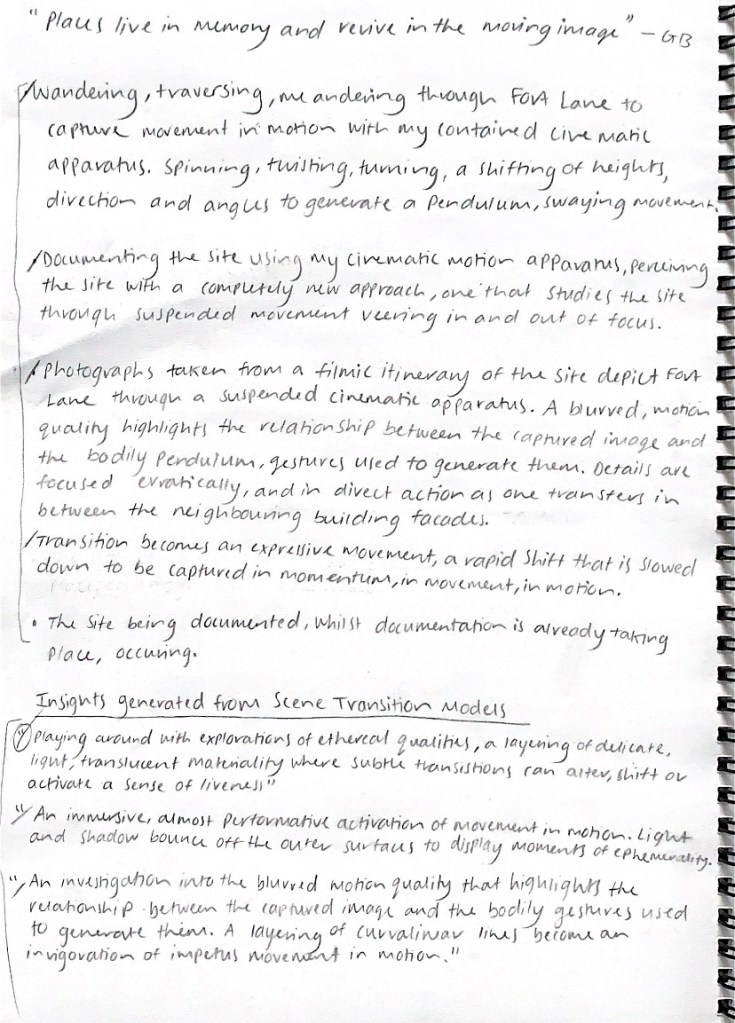 "Places live in memory and revive in the moving image" - GB
/Wandering, traversing, meandering through Fort Lane to
capture movement in motion with my contained cinematic
apparatus. Spinning, twisting, turning, a shifting of heights,
direction and angles to generate a pendulum, swaying movement.
/Documenting the site using my cinematic motion apparatus, perceiving
the site with a completely new approach, one that studies the site
through suspended movement veering in and out of focus.
/Photographs taken from a filmic itinerary of the site depict Fort
Lane through a suspended cinematic apparatus. A blurred, motion
quality highlights the relationship between the captured image and
the bodily pendulum, gestures used to generate them. Details are
focused erratically, and in direct action as one transfers in
between the neighbouring building facades.
/Transition becomes an expressive movement, a rapid shift that is slowed
down to be captured in momentum, in movement, in motion.
• The site being documented, whilst documentation is already taking
place, occuring.
Insights generated from Scene Transition Models
"/Playing around with explorations of ethereal qualities, a layering of delicate,
light, translucent materiality where subtle transistions can alter, shift or
activate a sense of liveness"
"/An immersive, almost performative activation of movement in motion. Light
and shadow bounce off the outer surfaces to display moments of ephemerality.
"/An investigation into the blurred motion quality that highlights the
relationship between the captured image and the bodily gestures used
to generate them. A layering of curvalinear lines become an
invigoration of impetus movement in motion."